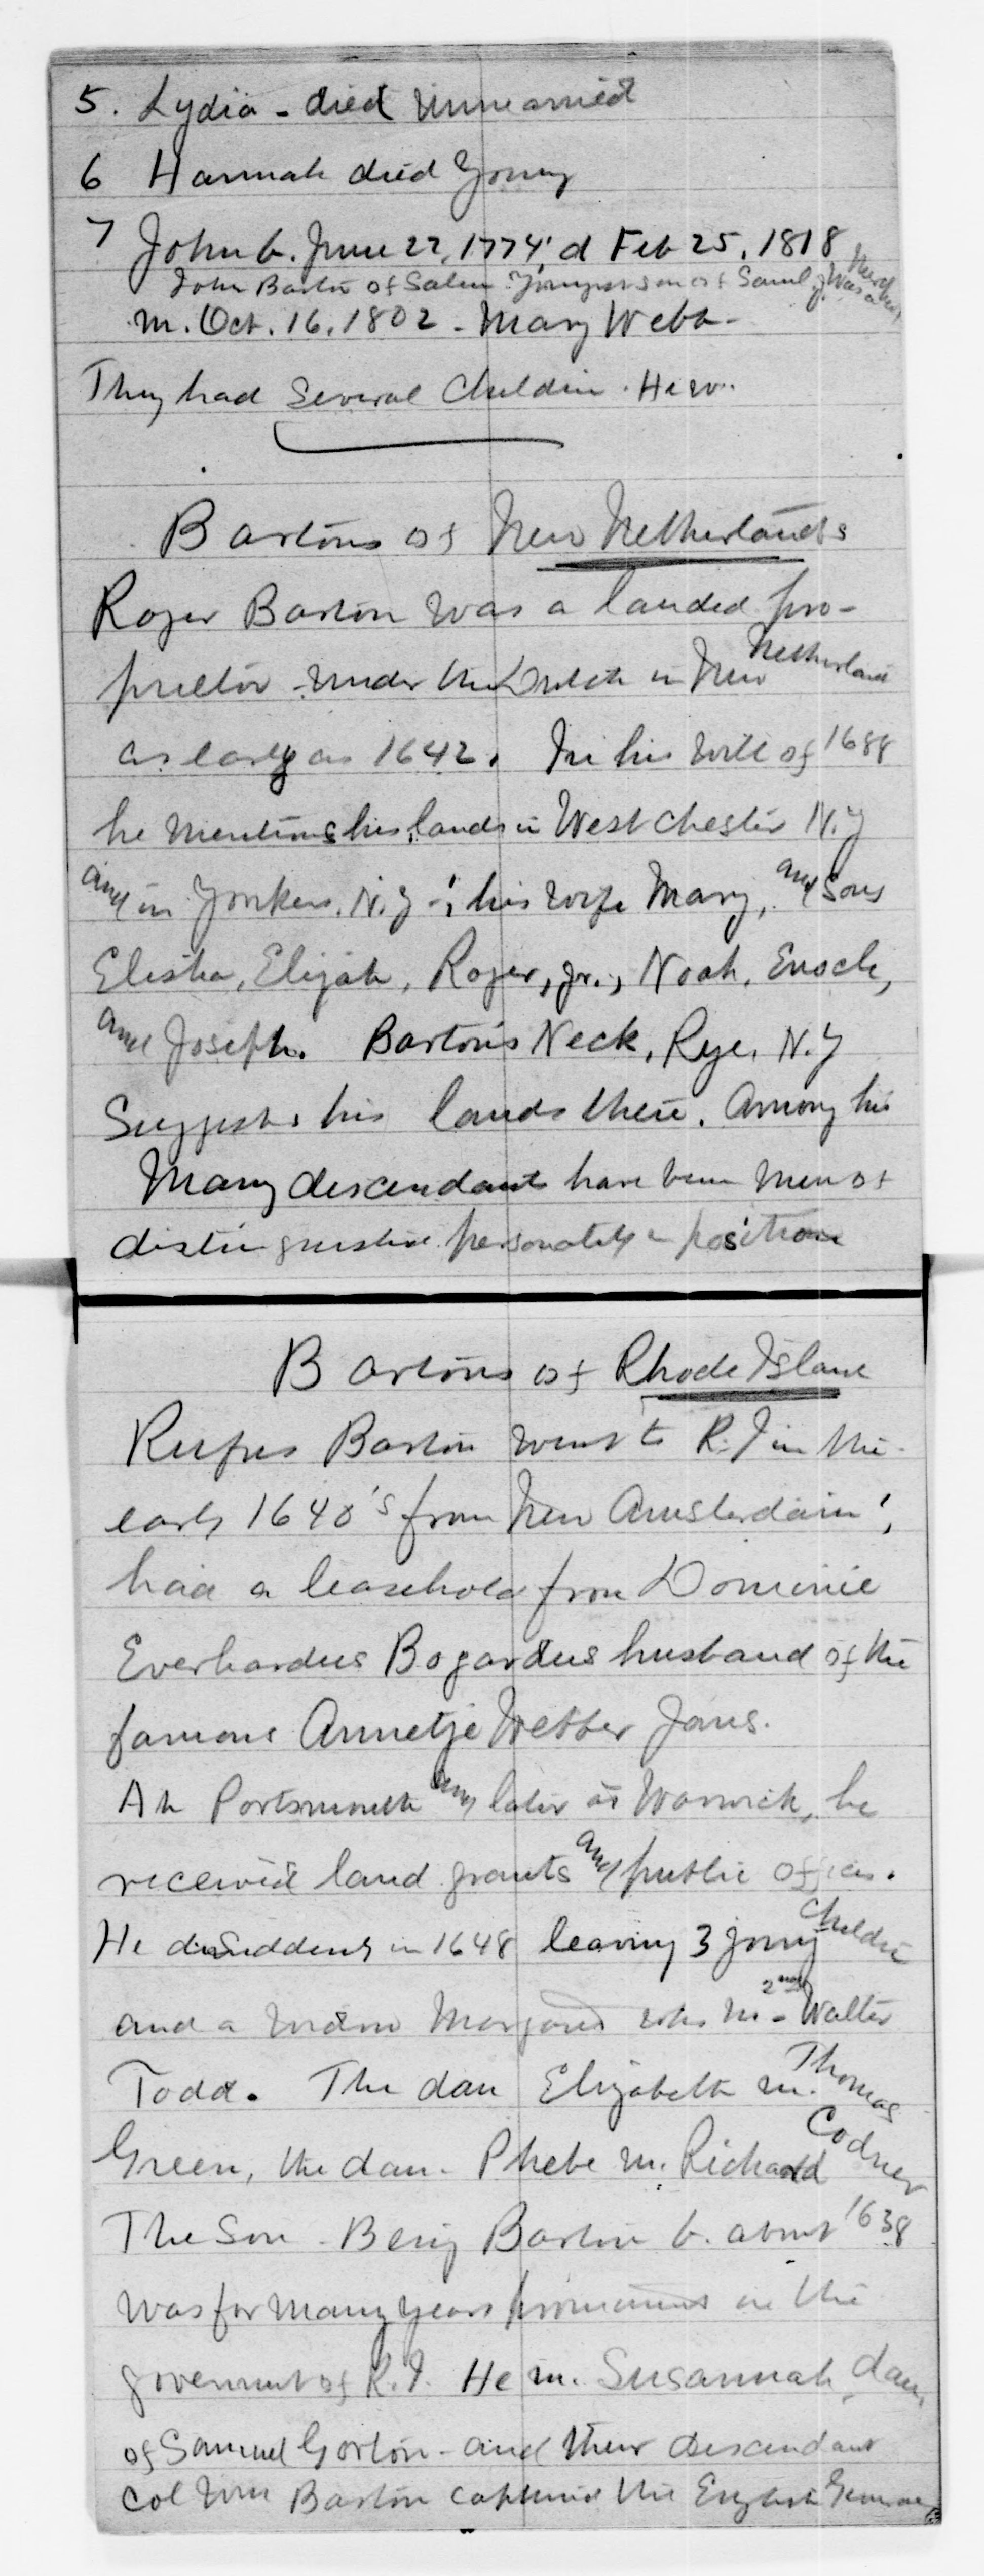 5. Lydia - died unmarried
6 Hannah died young
7 John b. June 22, 1774; d Feb 25, 1818
John Barton of Salem youngest son of Saml J. Was a
m. Oct. 16, 1802 - Mary Webb -
They had several children. He w..
Bartons of New Netherlands
Roger Barton was a landed pro-
prietor under the Dutch in New Netherland
as early as 1642. In his will of 1688
he mentions his lands in West Chester N.Y
and in Yonkers, N.Y -; his wife Mary, and sons
Elisha, Elijah, Roger, Jr., Noah, Enoch,
and Joseph. Barton's Neck, Rye, N.Y
suggests his lands there. Among his
many descendants have been men of
distinguished personality & position
Bartons of Rhode Island
Rufus Barton went to R.I in the
early 1640's from New Amsterdam;
had a leasehold from Dominie
Everhardus Bogardus husband of the
famous Annetje Webber Jans.
At Portsmouth and later at Warwick, he
received land grants and public offices.
He died suddenly in 1648 leaving 3 young children
and a widow Margaret who m - 2nd Walter
Todd. The dau Elizabeth m. Thomas
Green, the dau. Phebe m. Richard Codner
The Son - Benj Barton b. about 1638
was for many years prominent in the
goverment of R.I. He m. Susannah, dau,
of Samuel Gorton - and their descendant
Col Wm Barton captured the English General